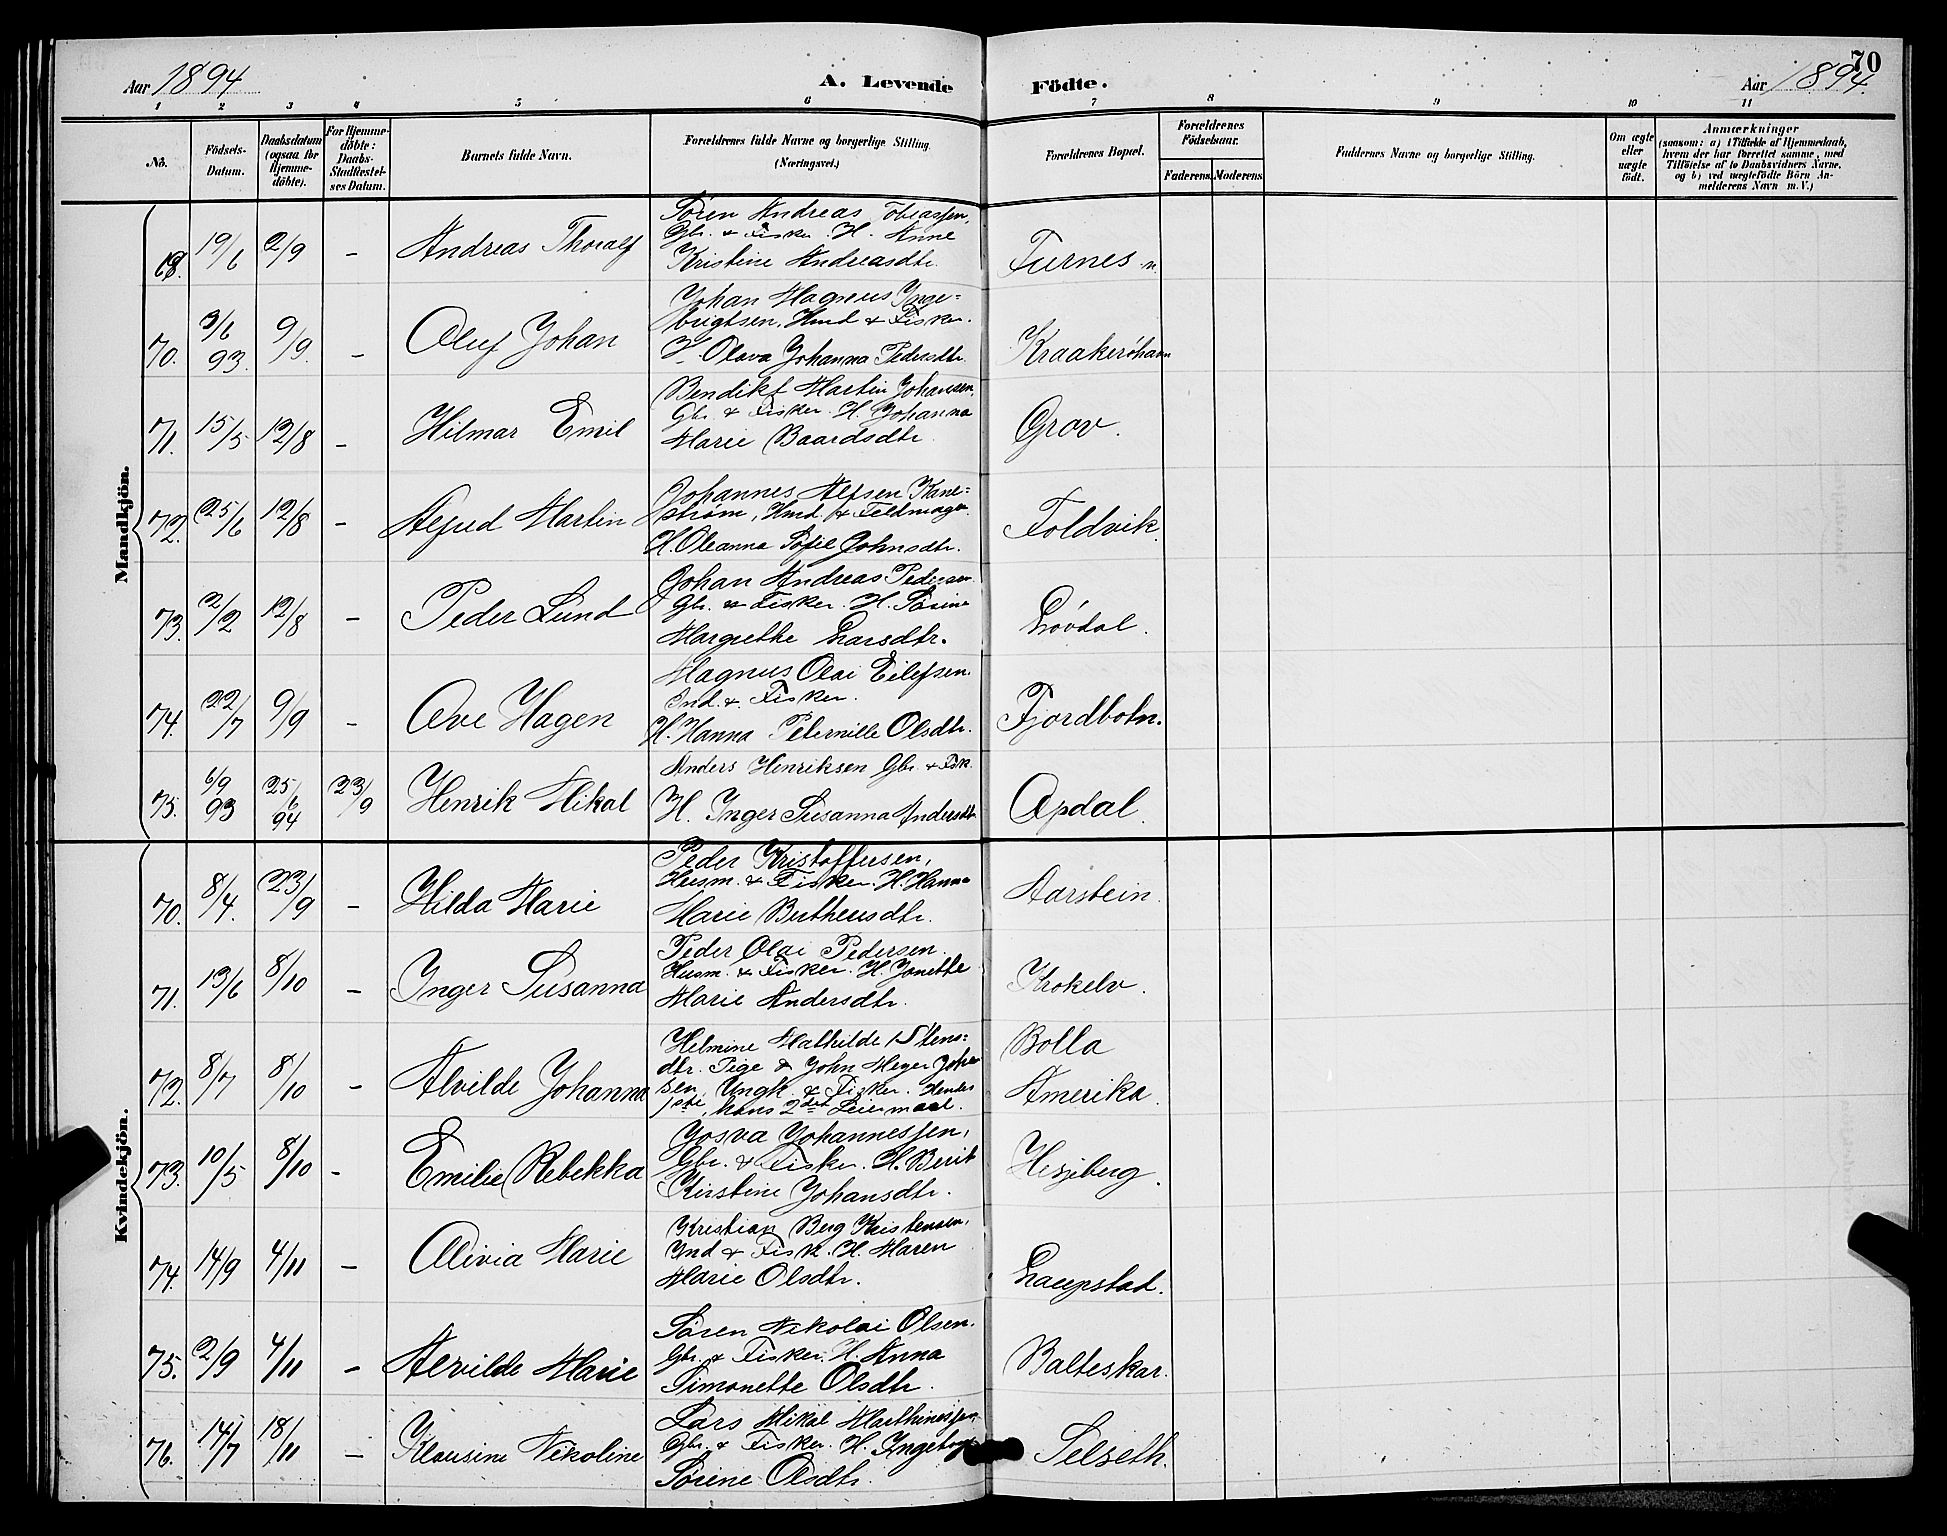 Aar 1894
A. Levende
Födte.
Aar 1894.
70
1 2 3 4 5 6 7 8 9 10 11
No.
Födsels-Datum.
Daabsdatum (ogsaa for Hjemme-döbte).
For Hjemme-döbte: Daabs-Stadfæstel-ses Datum.
Barnets fulde Navn.
Forældrenes fulde Navne og borgerlige Stilling. (Næringsvei.)
Forældrenes Bopæl.
Forældrenes Födselsaar.
Faderens. Moderens.
Faddernes Navne og borgerlige Stilling.
Om ægte eller uægte födt.
Anmærkninger
(saasom: a) i Tilfælde af Hjemmedaab,
hvem der har forrettet samme, med
Tilföielse af to Daabsvidners Navne,
og b) ved uægtefödte Börn An-
melderens Navn m. V.)
Mandkjön.
19/6 2/9 - Andreas Thoralf
Sören Andreas Tobiassen,
Gbr. & Fisker. H. Anne
Kristine Andreasdtr.
Furnes
70. 3/6 93. 9/9. - Oluf Johan
Johan Magnus Inge=
brigtsen, Hmd & Fisker.
H. Olava Johanna Pedersdtr.
Kraakeröhavn
71. 15/5 12/8 - Hilmar Emil
Bendikt Martin Johansen,
Gbr. & Fisker. H. Johanna
Marie Baardsdtr.
Grov.
72. 25/6 12/8 - Martin
Johannes Alfsen Kane=
ström, Hmd. &
H. Oleanna Sofie Johnsdtr.
Foldvik.
73. 2/2 12/8 - Peder Lund
Johan Andreas Pedersen
Gbr. & Fisker. H. Sörine
Margrethe Larsdtr.
Lövdal.
74. 22/7 9/9 - Ove Hagen
Magnus Olai Eilefsen.
Ind. & Fisker.
H. Hanna Peternille Olsdtr.
Fjordbotn.
75. 6/9 93 25/6 94 23/9 Henrik Mikal
Anders Henriksen Gbr. & Fisk.
H. Inger Susanna Andersdtr.
Opdal.
Kvindekjön.
70. 8/4. 23/9 - Hilda Marie
Peder Kristoffersen,
Husm. & Fisker. H. Hanna
Marie Bertheusdtr.
Aarstein.
71. 13/6 8/10 - Inger Susanna
Peder Olai Pedersen
Husm. & Fisker. H. Jonette
Marie Andersdtr.
Krokelv.
72. 8/7 8/10 - Alvilde Johanna
Helmine Mathilde Stens=
dtr. Pige & John Meyer Johan
sen, Ungk. & Fisker. Hendes
1ste, hans 2det Leiermaal.
Bolla
Amerika.
73. 10/5 8/10 - Emilie Rebekka
Josva Johannessen,
Gbr. & Fisker. H. Berit
Kirstine Johansdtr.
Hesjeberg.
74. 14/9 4/11 - Olivia Marie
Kristian Berg Kristensen,
Ind & Fisk. H. Maren
Marie Olsdtr.
Laupstad.
75. 2/9 4/11 - Alvilde Marie
Sören Nikolai Olsen.
Gbr. & Fisker. H. Anna
Simonette Olsdtr.
Balteskar.
76. 14/7 18/11 - Klausine Nikoline
Lars Mikal Marthinessen,
Gbr. & Fisker. H. Ingeborg
Sörine Olsdtr.
Selseth.